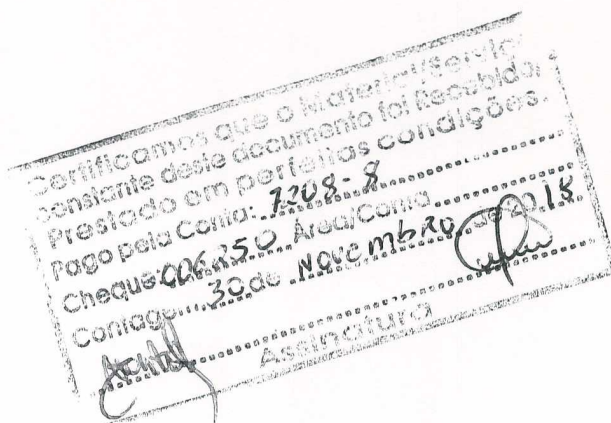 Certificamos que o Material/Serviço
constante deste documento foi Recebido/
Prestado em perfeitas condições.
Pago pela Conta: 7208-8
Cheque 006250 Área/Conta
Contagem 30 de Novembro de 2018
Assinatura